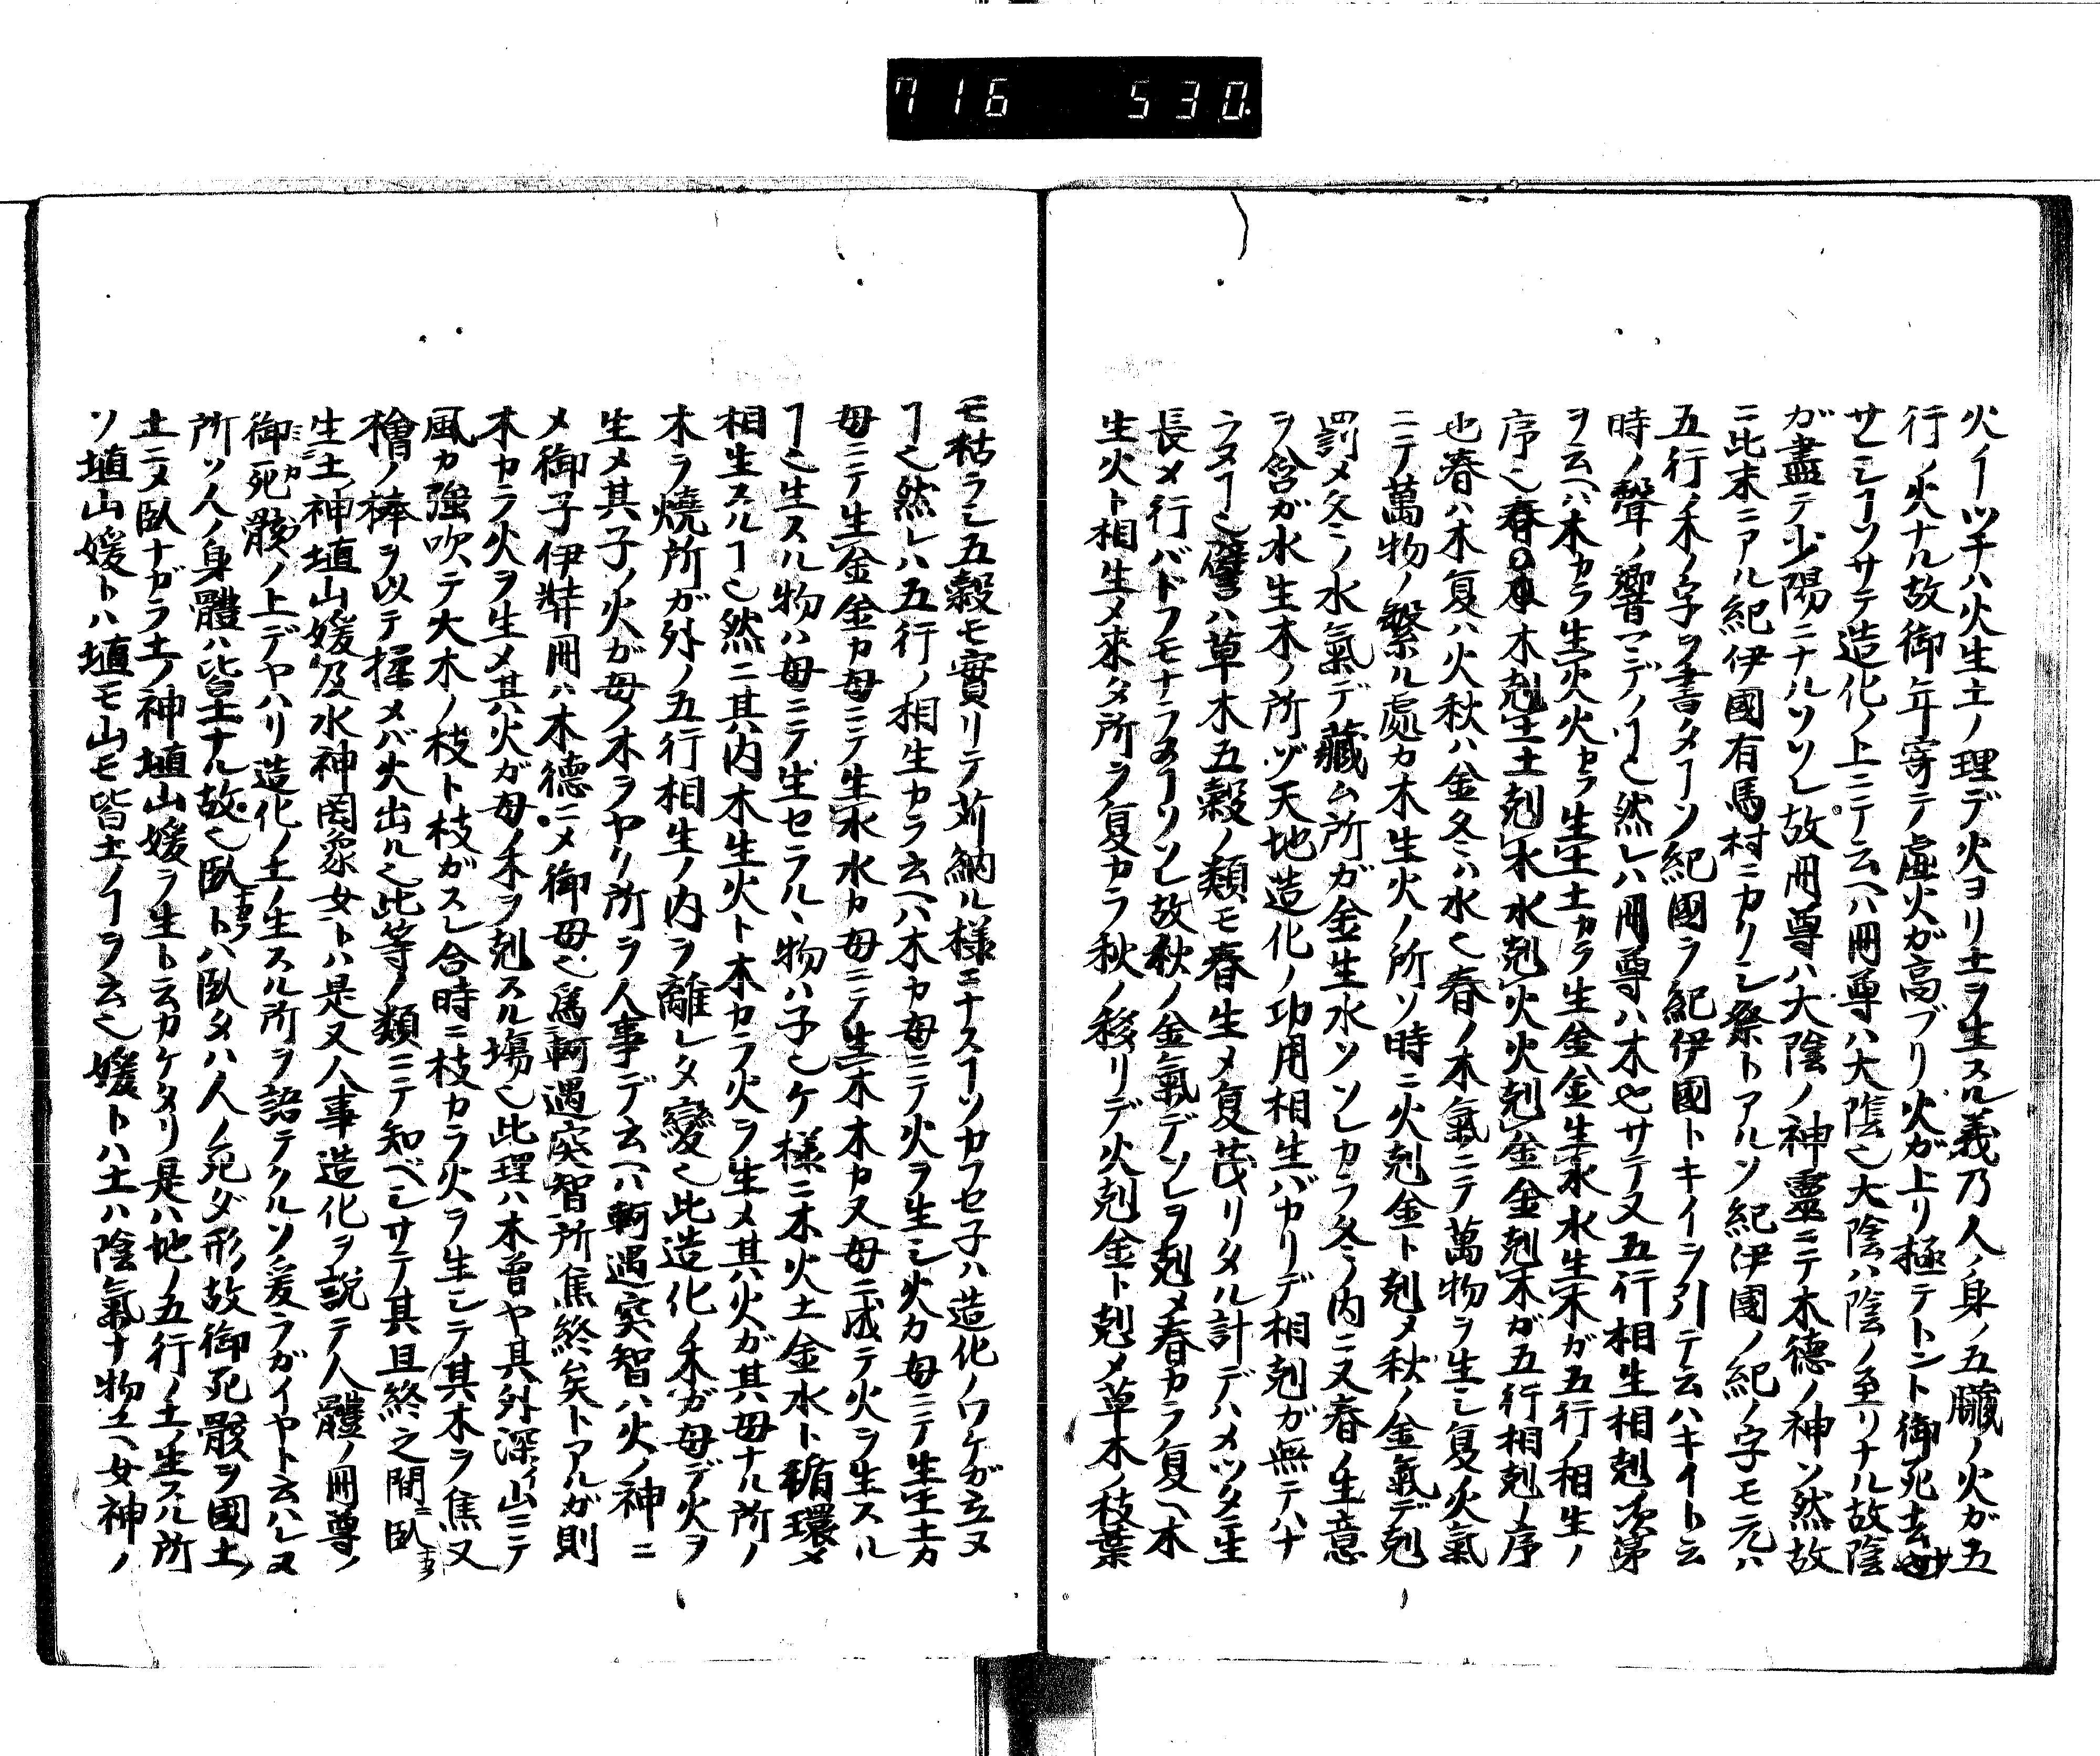 716 530.
火ノイツチハ火生土ノ理デ火ヨリ土ヲ生スル義乃人ノ身ノ五臓ノ火ガ五
行ノ火ナル故御年寄ニテ虚火ガ高ブリ火ガ上リ極テトント御死去
サレシヿソサテ造化ノ上ニテ云ヘハ冊尊ハ大陰也大陰ハ陰ノ至リナル故陰
ガ盡テ少陽ニナルソソレ故冊尊ハ大陰ノ神靈ニテ木德ノ神ソ然故
ニ此末ニアル紀伊國有馬村ニカクシ祭トアルソ紀伊國ノ紀ノ字モ元ハ
五行ノ木ノ字ヲ書タヿソ紀國ヲ紀伊國トキイヲ引テ云ハキイト云
時ノ聲ノ響マデノヿ也然レハ冊尊ハ木也サテ又五行相生相剋ノ次第
ヲ云ヘハ木カラ生火火カラ生土土カラ生金金生水水生木ガ五行ノ相生ノ
序也春木木剋土土剋水水剋火火剋金金剋木ガ五行相剋ノ序
也春ハ木夏ハ火秋ハ金冬ハ水也春ノ木氣ニテ萬物ヲ生シ夏火氣
ニテ萬物ノ繁ル處カ木生火ノ所ソ時ニ火剋金ト剋メ秋ノ金氣デ剋
罰メ冬ノ水氣デ藏ム所ガ金生水ソソレカラ冬ノ内ニ又春ノ生意
ヲ含ガ水生木ノ所ゾ天地造化ノ功用相生バカリデ相剋ガ無テハナ
ラヌヿ也譬ハ草木五穀ノ類モ春生メ夏茂リタル計デハメツタ生
長メ行バドフモナラヌヿソソレ故秋ノ金氣デソレヲ剋メ春カラ夏ヘ木
生火ト相生メ來タ所ヲ夏カラ秋ノ移リデ火剋金ト剋メ草木ノ枝葉
モ枯ラシ五穀モ實リテ苅納ル様ニナスヿソカフセ子ハ造化ノワケガ立ヌ
ヿ也然レハ五行ノ相生カラ云ヘハ木カ母ニテ火ヲ生シ火カ母ニテ生土土カ
母ニテ生金金カ母ニテ生水水カ母ニテ生木木カ又母ニ成テ火ヲ生スル
ヿ也生スル物ハ母ニテ生セラルヽ物ハ子也ケ様ニ木火土金水ト循環メ
相生スルヿ也然ニ其内木生火ト木カラ火ヲ生メ其火ガ其母ナル所ノ
木ヲ燒所ガ外ノ五行相生ノ内ヲ離レタ變也此造化ノ木ガ母デ火ヲ
生メ其子ノ火ガ母ノ木ヲヤク所ヲ人事デ云ヘハ軻遇突智ハ火ノ神ニ
メ御子伊弉冊ハ木德ニメ御母也爲軻遇突智所焦終矣トアルガ則
木カラ火ヲ生メ其火ガ母ノ木ヲ剋スル塲也此理ハ木曾ヤ其外深イ山ニテ
風カ強吹テ大木ノ枝ト枝ガスレ合時ニ枝カラ火ヲ生シテ其木ヲ焦又
檜ノ棒ヲ以テ揉メバ火出ル也此等ノ類ニテ知ベシサテ其且終之間ニ臥
生土神埴山媛及水神罔象女トハ是又人事造化ヲ説テ人體ノ冊尊ノ
御死骸ノ上デヤハリ造化ノ土ノ生スル所ヲ語テクルソ爰ヲガイヤト云ハレヌ
所ソ人ノ身體ハ皆土ナル故也臥トハ臥タハ人ノ死ダ形故御死骸ヲ國土ノ
土ニメ臥ナガラ土ノ神埴山媛ヲ生ト云カケタリ是ハ地ノ五行ノ土ノ生スル所
ソ埴山媛トハ埴モ山モ皆土ノヿヲ云也媛トハ土ハ陰氣ナ物ユヘ女神ノ